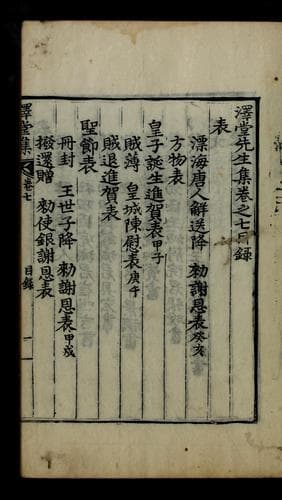 澤堂先生集卷之七目錄
表
漂海唐人解送降 勅謝恩表癸亥
方物表
皇子誕生進賀表甲子
賊薄 皇城陳慰表庚午
賊退進賀表
聖節表
冊封 王世子降 勅謝恩表甲戌
撥還贈 勅使銀謝恩表
澤堂集 卷七 目錄 一